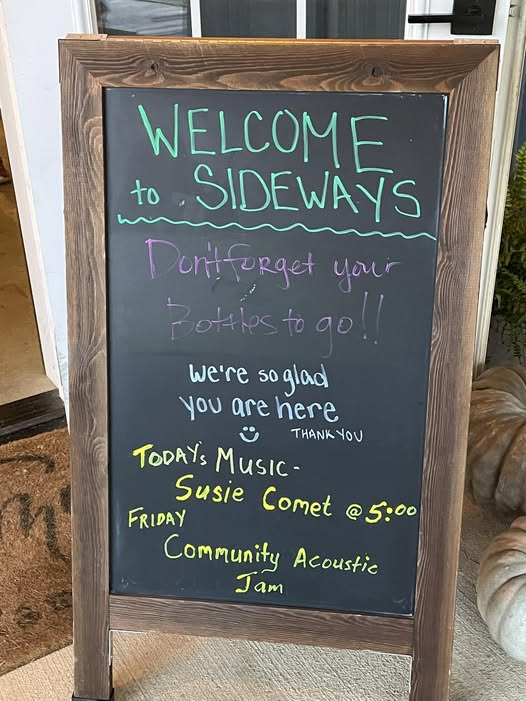 WELCOME
to SIDEWAYS
Don't forget your
Bottles to go!!
We're so glad
you are here
THANK YOU
TODAY'S MUSIC-
Susie Comet @ 5:00
FRIDAY
Community Acoustic
Jam